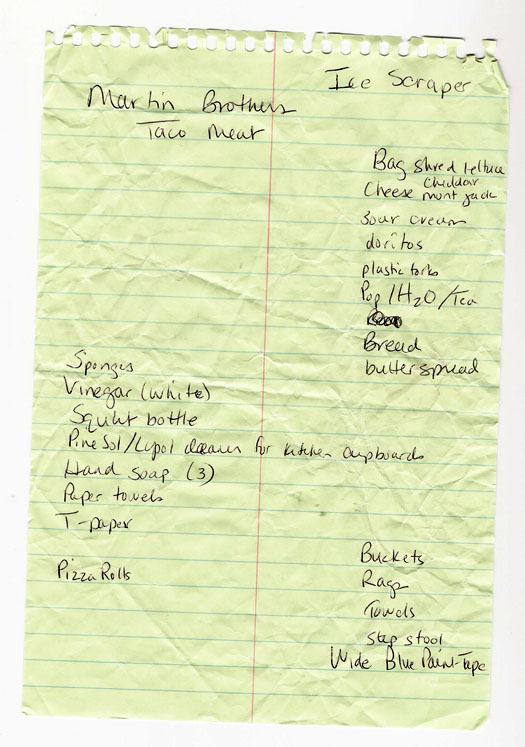 Ice Scraper
Martin Brothers
Taco Meat
Bag shred lettuce
Cheese cheddar
mont jack
sour cream
doritos
plastic forks
Pop/H2O/Tea
Bread
butter spread
Sponges
Vinegar (white)
Squirt bottle
Pine Sol/Lysol cleaner for kitchen cupboards
Hand soap (3)
Paper towels
T-paper
Pizza Rolls
Buckets
Rags
Towels
Step stool
Wide Blue Paint-Tape